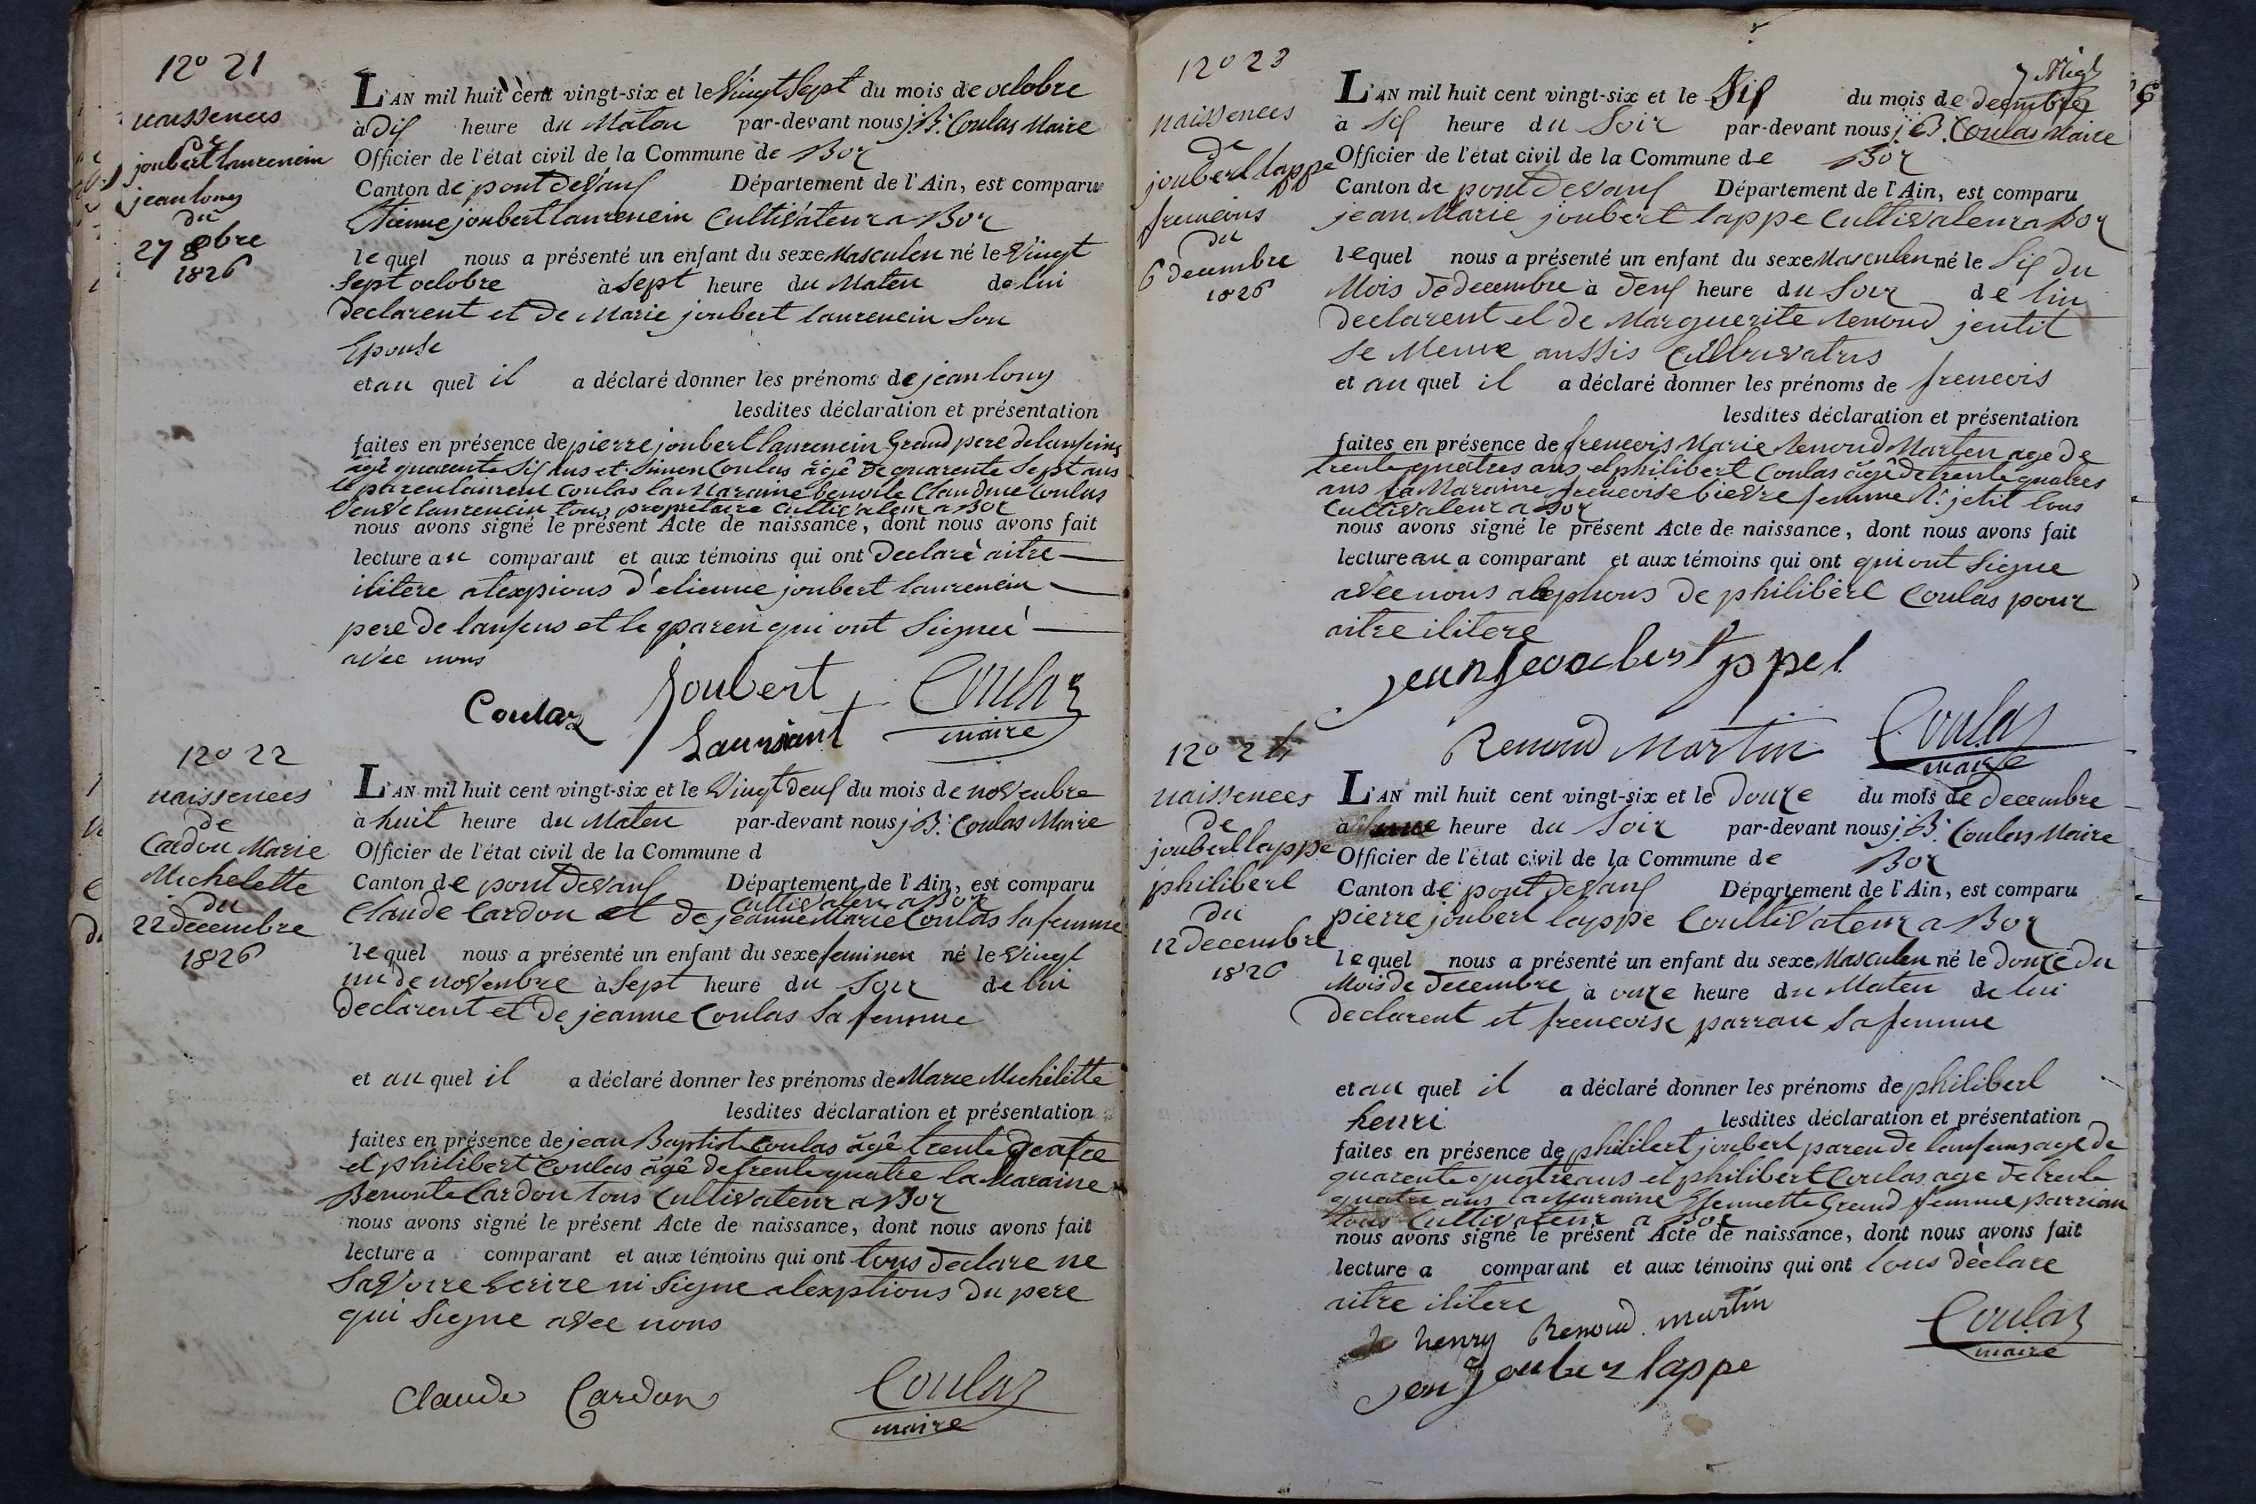 12° 21
naissences
de
joubert laurencin
jean louy
du
27 8bre
1826
L'AN mil huit cent vingt-six et le Vingt Sept du mois de octobre
à Dix heure du Maten par-devant nous j. B. Coulas Maire
Officier de l'état civil de la Commune de Boz
Canton de pont deVaux Département de l'Ain, est comparu
Etienne joubert laurencin CultiVateur a Boz
lequel nous a présenté un enfant du sexe Masculen né le Vingt
Sept octobre à Sept heure du Maten de lui
declarent et de Marie joubert laurencin Son
Epouse
et au quel il a déclaré donner les prénoms de jean louy
lesdites déclaration et présentation
faites en présence de pierre joubert laurencin Grand pere de lanfeins
âgé quarente Six ans et Simon Coulas âgê de quarente Sept ans
le paren laurent Coulas la Maraine benoite Claudine Coulas
VeuVe laurencin tous propretaire CultiVateur a Boz
nous avons signé le présent Acte de naissance, dont nous avons fait
lecture au comparant et aux témoins qui ont Declaré aitre
ilitere alexpions d'etienne joubert laurencin
pere De lanfens et le paren qui ont Signeé
aVec nous
Coulas Joubert Coulas
Lauriant maire
12° 22
naissences
de
Cardon Marie
Michelette
du
22 decembre
1826
L'AN mil huit cent vingt-six et le Vingt deux du mois de noVenbre
à huit heure du Maten par-devant nous j. B. Coulas Maire
Officier de l'état civil de la Commune d
Canton de pont deVaux Département de l'Ain, est comparu
CultiVateur a Boz
Claude Cardon et de jeanne Marie Coulas Sa femme
lequel nous a présenté un enfant du sexe feminen né le Vingt
un de noVenbre à Sept heure du Soir de lui
Declarent et De jeanne Coulas Sa femme
et au quel il a déclaré donner les prénoms de Marie Michelette
lesdites déclaration et présentation
faites en présence de jean Baptiste Coulas âgê trente quatre
et philibert Coulas âgê de trente quatre la Maraine
Benoite Cardon tous CultiVateur a Boz
nous avons signé le présent Acte de naissance, dont nous avons fait
lecture a comparant et aux témoins qui ont tous declare ne
SaVoire Ecrire ni Signe alexptions du pere
qui Signe aVec nous
Claude Cardon Coulas
maire
12° 23
naissences
de
joubert lappe
frencois
du
6 decembre
1826
L'AN mil huit cent vingt-six et le Six du mois de decembre
à Six heure du Soir par-devant nous j. B. Coulas Maire
Officier de l'état civil de la Commune de Boz
Canton de pont deVaux Département de l'Ain, est comparu
jean Marie joubert lappe CultiVateur a Boz
lequel nous a présenté un enfant du sexe Masculen né le Six du
Mois De decembre à deux heure du Soir de lui
declarent et de Marguerite Renoud jentit
Se Meme aussis CultruVatris
et au quel il a déclaré donner les prénoms de frencois
lesdites déclaration et présentation
faites en présence de frencois Marie Renoud Marten age de
trente quatres ans et philibert Coulas âgê de trente quatres
ans la Maraine frencoise bieVre femme jetit tous
CultiVateur a Boz
nous avons signé le présent Acte de naissance, dont nous avons fait
lecture au a comparant et aux témoins qui ont qui ont Signe
aVec nous De philibért Coulas pour
aitre ilitere
Renoud Martin Coulas
maire
12° 24
naissences
de
joubert lappe
philibert
du
12 decembre
1826
L'AN mil huit cent vingt-six et le douze du mois de decembre
à heure du Soir par-devant nous j. B. Coulas Maire
Officier de l'état civil de la Commune de Boz
Canton de pont deVaux Département de l'Ain, est comparu
pierre joubert lappe CoultiVateur a Boz
lequel nous a présenté un enfant du sexe Masculen né le douze du
Mois De decembre à onze heure du Maten de lui
declarent et frencoise parrau Sa femme
et au quel il a déclaré donner les prénoms de philibert
henri lesdites déclaration et présentation
faites en présence de philibert joubert paren de lanfens age de
quarente quatre ans et philibert Coulas age de trente
quatre ans la Maraine Grand femme parrau
tous CultiVateur a Boz
nous avons signé le présent Acte de naissance, dont nous avons fait
lecture a comparant et aux témoins qui ont tous dèclare
aitre ilitere
henry Renoud martin Coulas
maire
jan jouber lappe